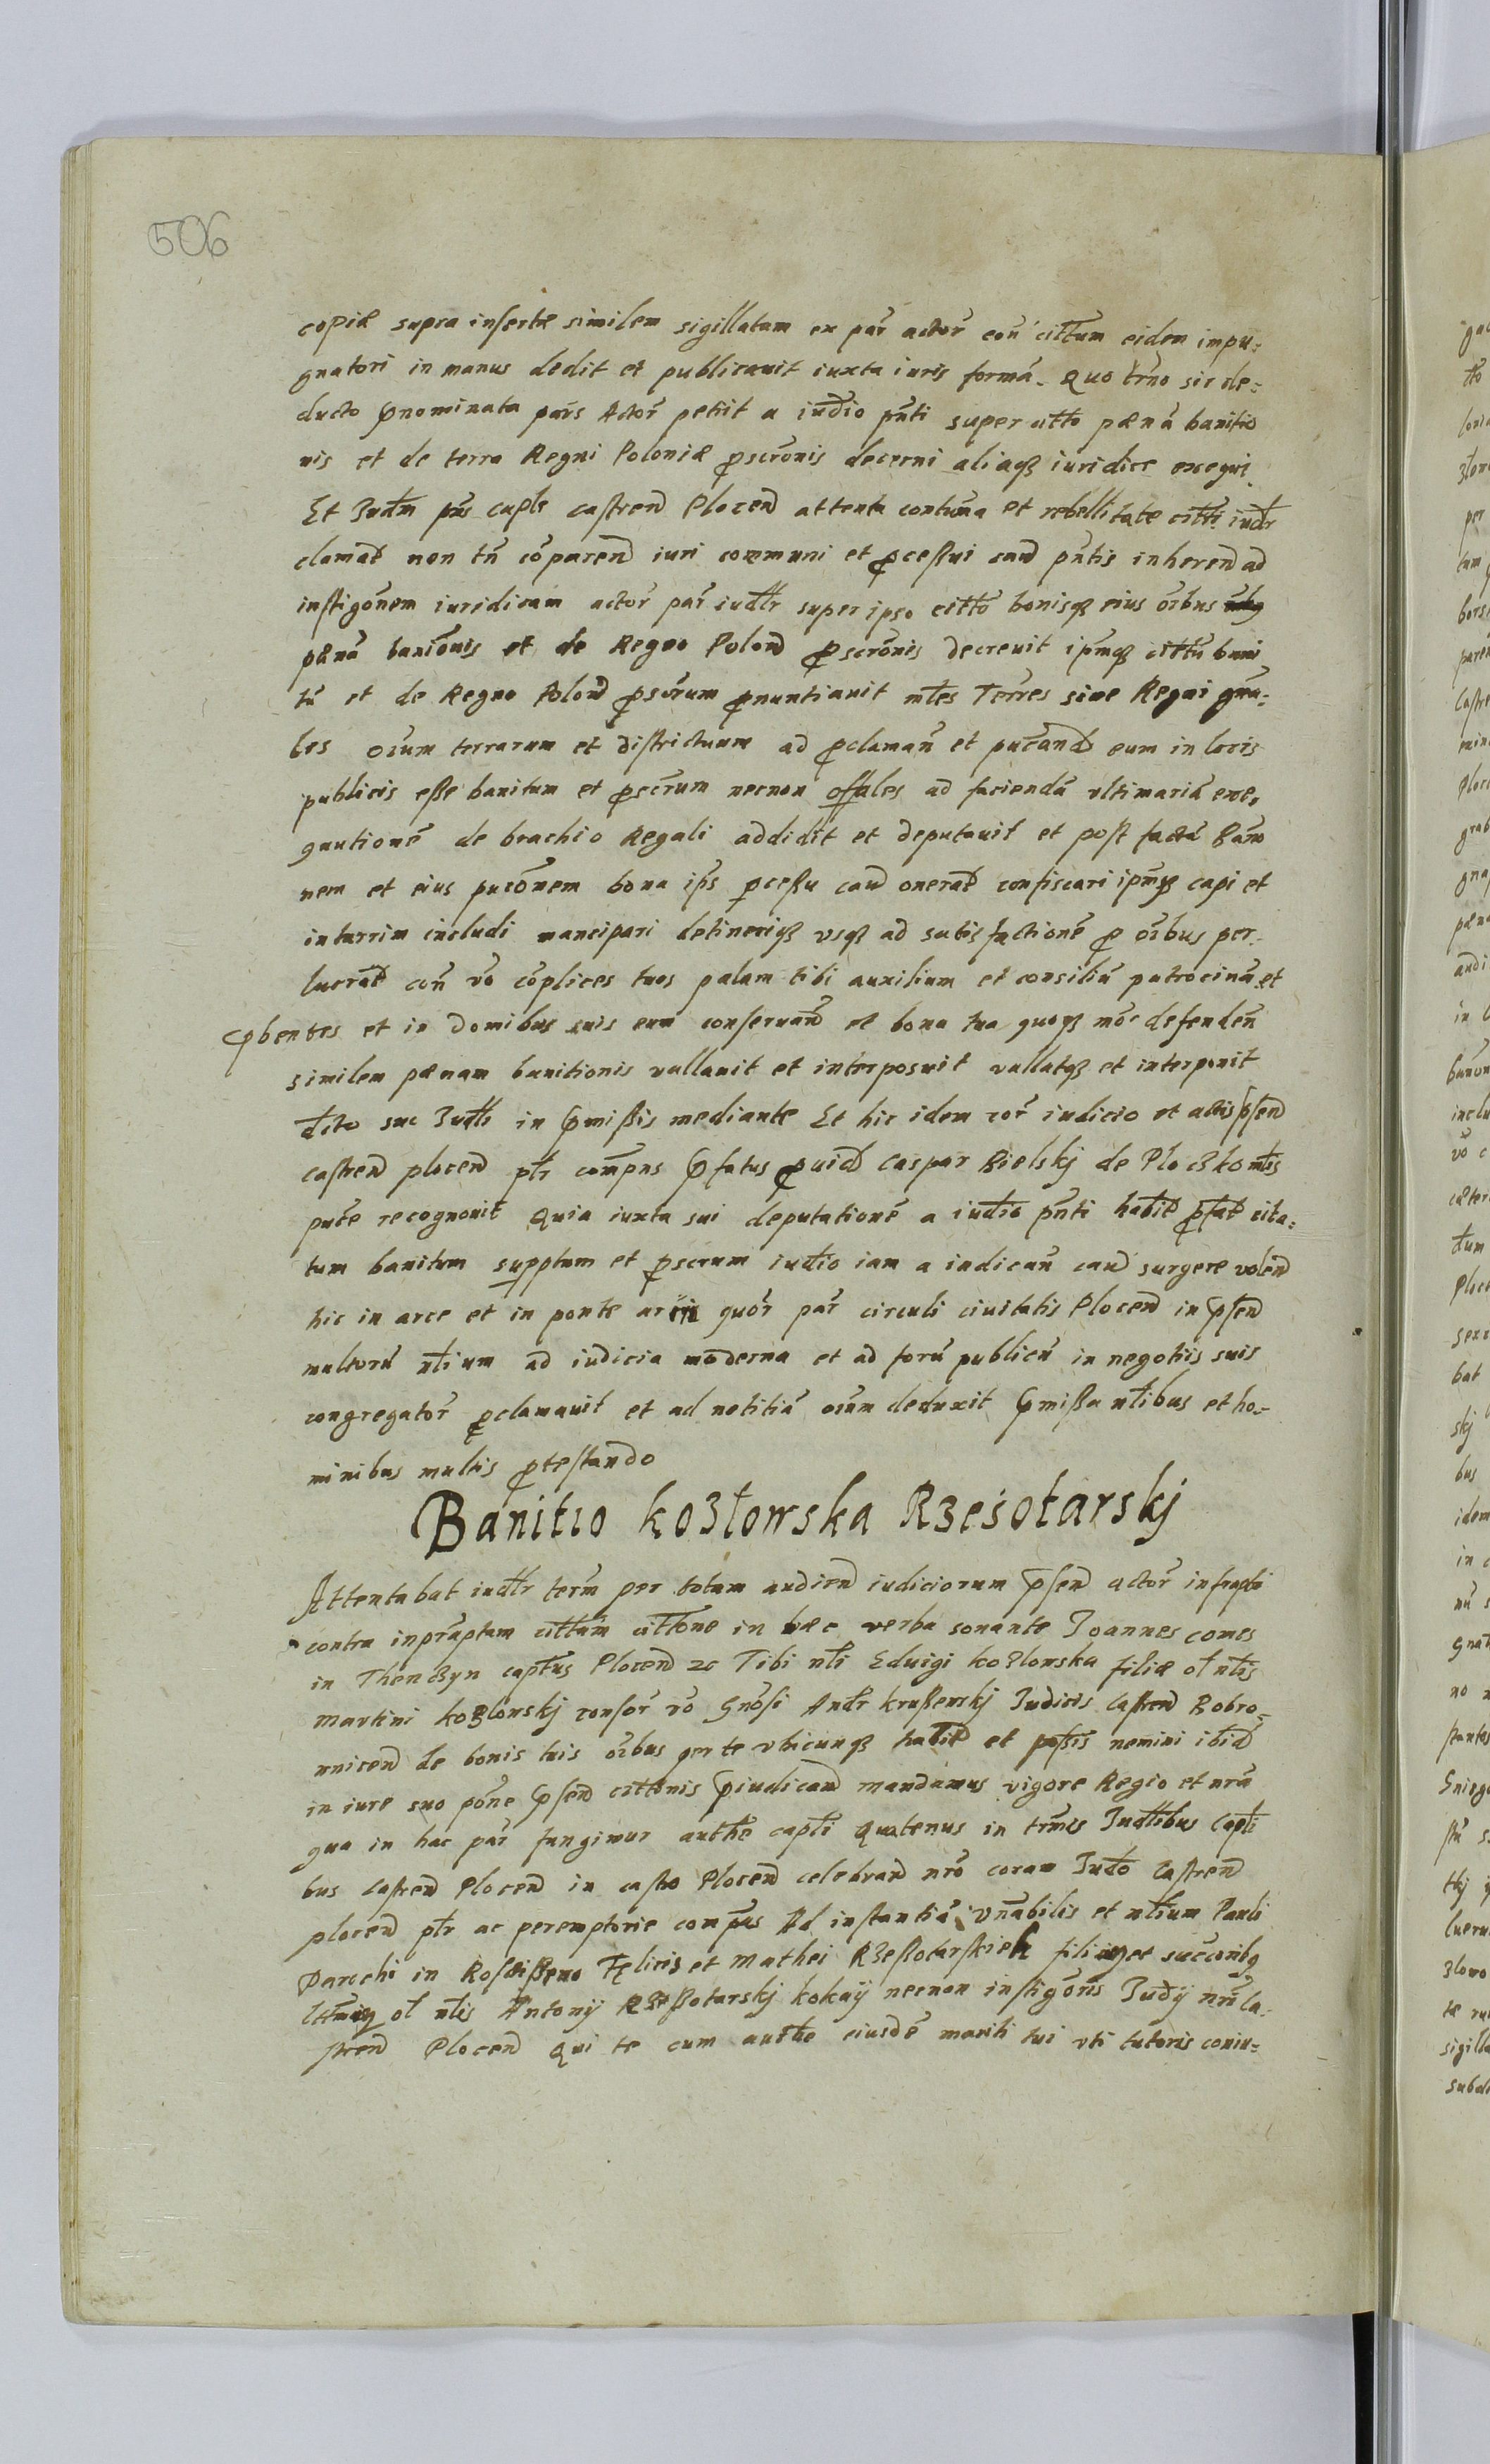 506
copiæ supra insertæ similem sigillatam ex par actor con cittum eidem impu:
gnatori in manus dedit et publicauit iuxta iuris formā. Quo trno sic de:
ducto pnominata pars Actor petiit a iudio pnti super citto pænā banitio
nis et de terra Regni Poloniæ pscronis decerni aliaqz iuridice exequi.
Et Iudm pns caple castren Plocen attenta contuma et rebellitate citti iudr
clamat non tn comparen iuri communi et pcessui cau pntis inheren ad
instigonem iuridicam actor par iudlr super ipso citto bonisqz eius oibus
pænā banionis et de Regno Polon pscronis decreuit ipmqz cittū bani
tū et de Regno Polon pscrum pnuntiauit mles Terres siue Regni gna:
les oium terrarum et districtuum ad pclaman et pucand eum in locis
publicis esse banitum et pscrum necnon offales ad faciendā vltimariā exe,
quutionē de brachio Regali addidit et deputauit et post factā banio
nem et eius puconem bona ips pcessu cau onerat confiscari ipmqz capi et
in turrim includi mancipari detineriqz vsqz ad satisfactionē p oibus per-
lucrat con vo cōplices tuos palam tibi auxilium et consiliū patrocinā et
pbentes et in domibus suis eum conseruan et bona tua quoqz mōc defenden
similem pænam banitionis vallauit et interposuit vallatqz et interponit
dcto suo Iudli in pmissis mediante Et hic idem cor iudicio et actis psen
castren plocen plr compns pfatus puid Caspar Bielskj de Ploczko mlis
puce recognouit Quia iuxta sui deputationē a iudio pnti habit pfat cita:
tum banitum supptum et pscrum iudio iam a iudican cau surgere volen
hic in arce et in ponte arcis quor par circuli ciuitatis Plocen in psen
multorū nlium ad iudicia moderna et ad forū publicū in negotiis suis
congregator pclamauit et ad notitiā oium deduxit pmissa nlibus et ho-
minibus multis ptestando
Banitio kozłowska Rzeszotarskj
Attentabat iudlr term per totam audien iudiciorum psen actor infrapti
contra inpraptam cittam cittone in hæc verba sonante Ioannes comes
in Thenczyn captus Plocen zc Tibi nli Eduigi Kozlowska filiæ ol nlis
Martini kozlowskj consor vo Gnosi Andr krussewskj Iudicis Castren Bobro-
wnicen de bonis tuis oibus per te vbicunqz habit et possis nemini ibid
in iure suo pone psen cittonis piudican mandamus vigore Regio et nrā
qua in hac par fungimur authe capli Quatenus in trmis Iudlibus Capli
bus Castren Plocen in castro Plocen celebran nro coram Iudo Castren
plocen plr ac peremptorie compas Ad instantiā vnabilis et nlium Pauli
Parochi in Felicis et Mathei Rzessotarskieh filiorum et succoribq
lttmiq ol nlis Antonij Rzessotarskj kokaij necnon instigoris Iudij nri Ca-
stren Plocen Qui te cum authe eiusdē mariti tui vti tutoris coniu-